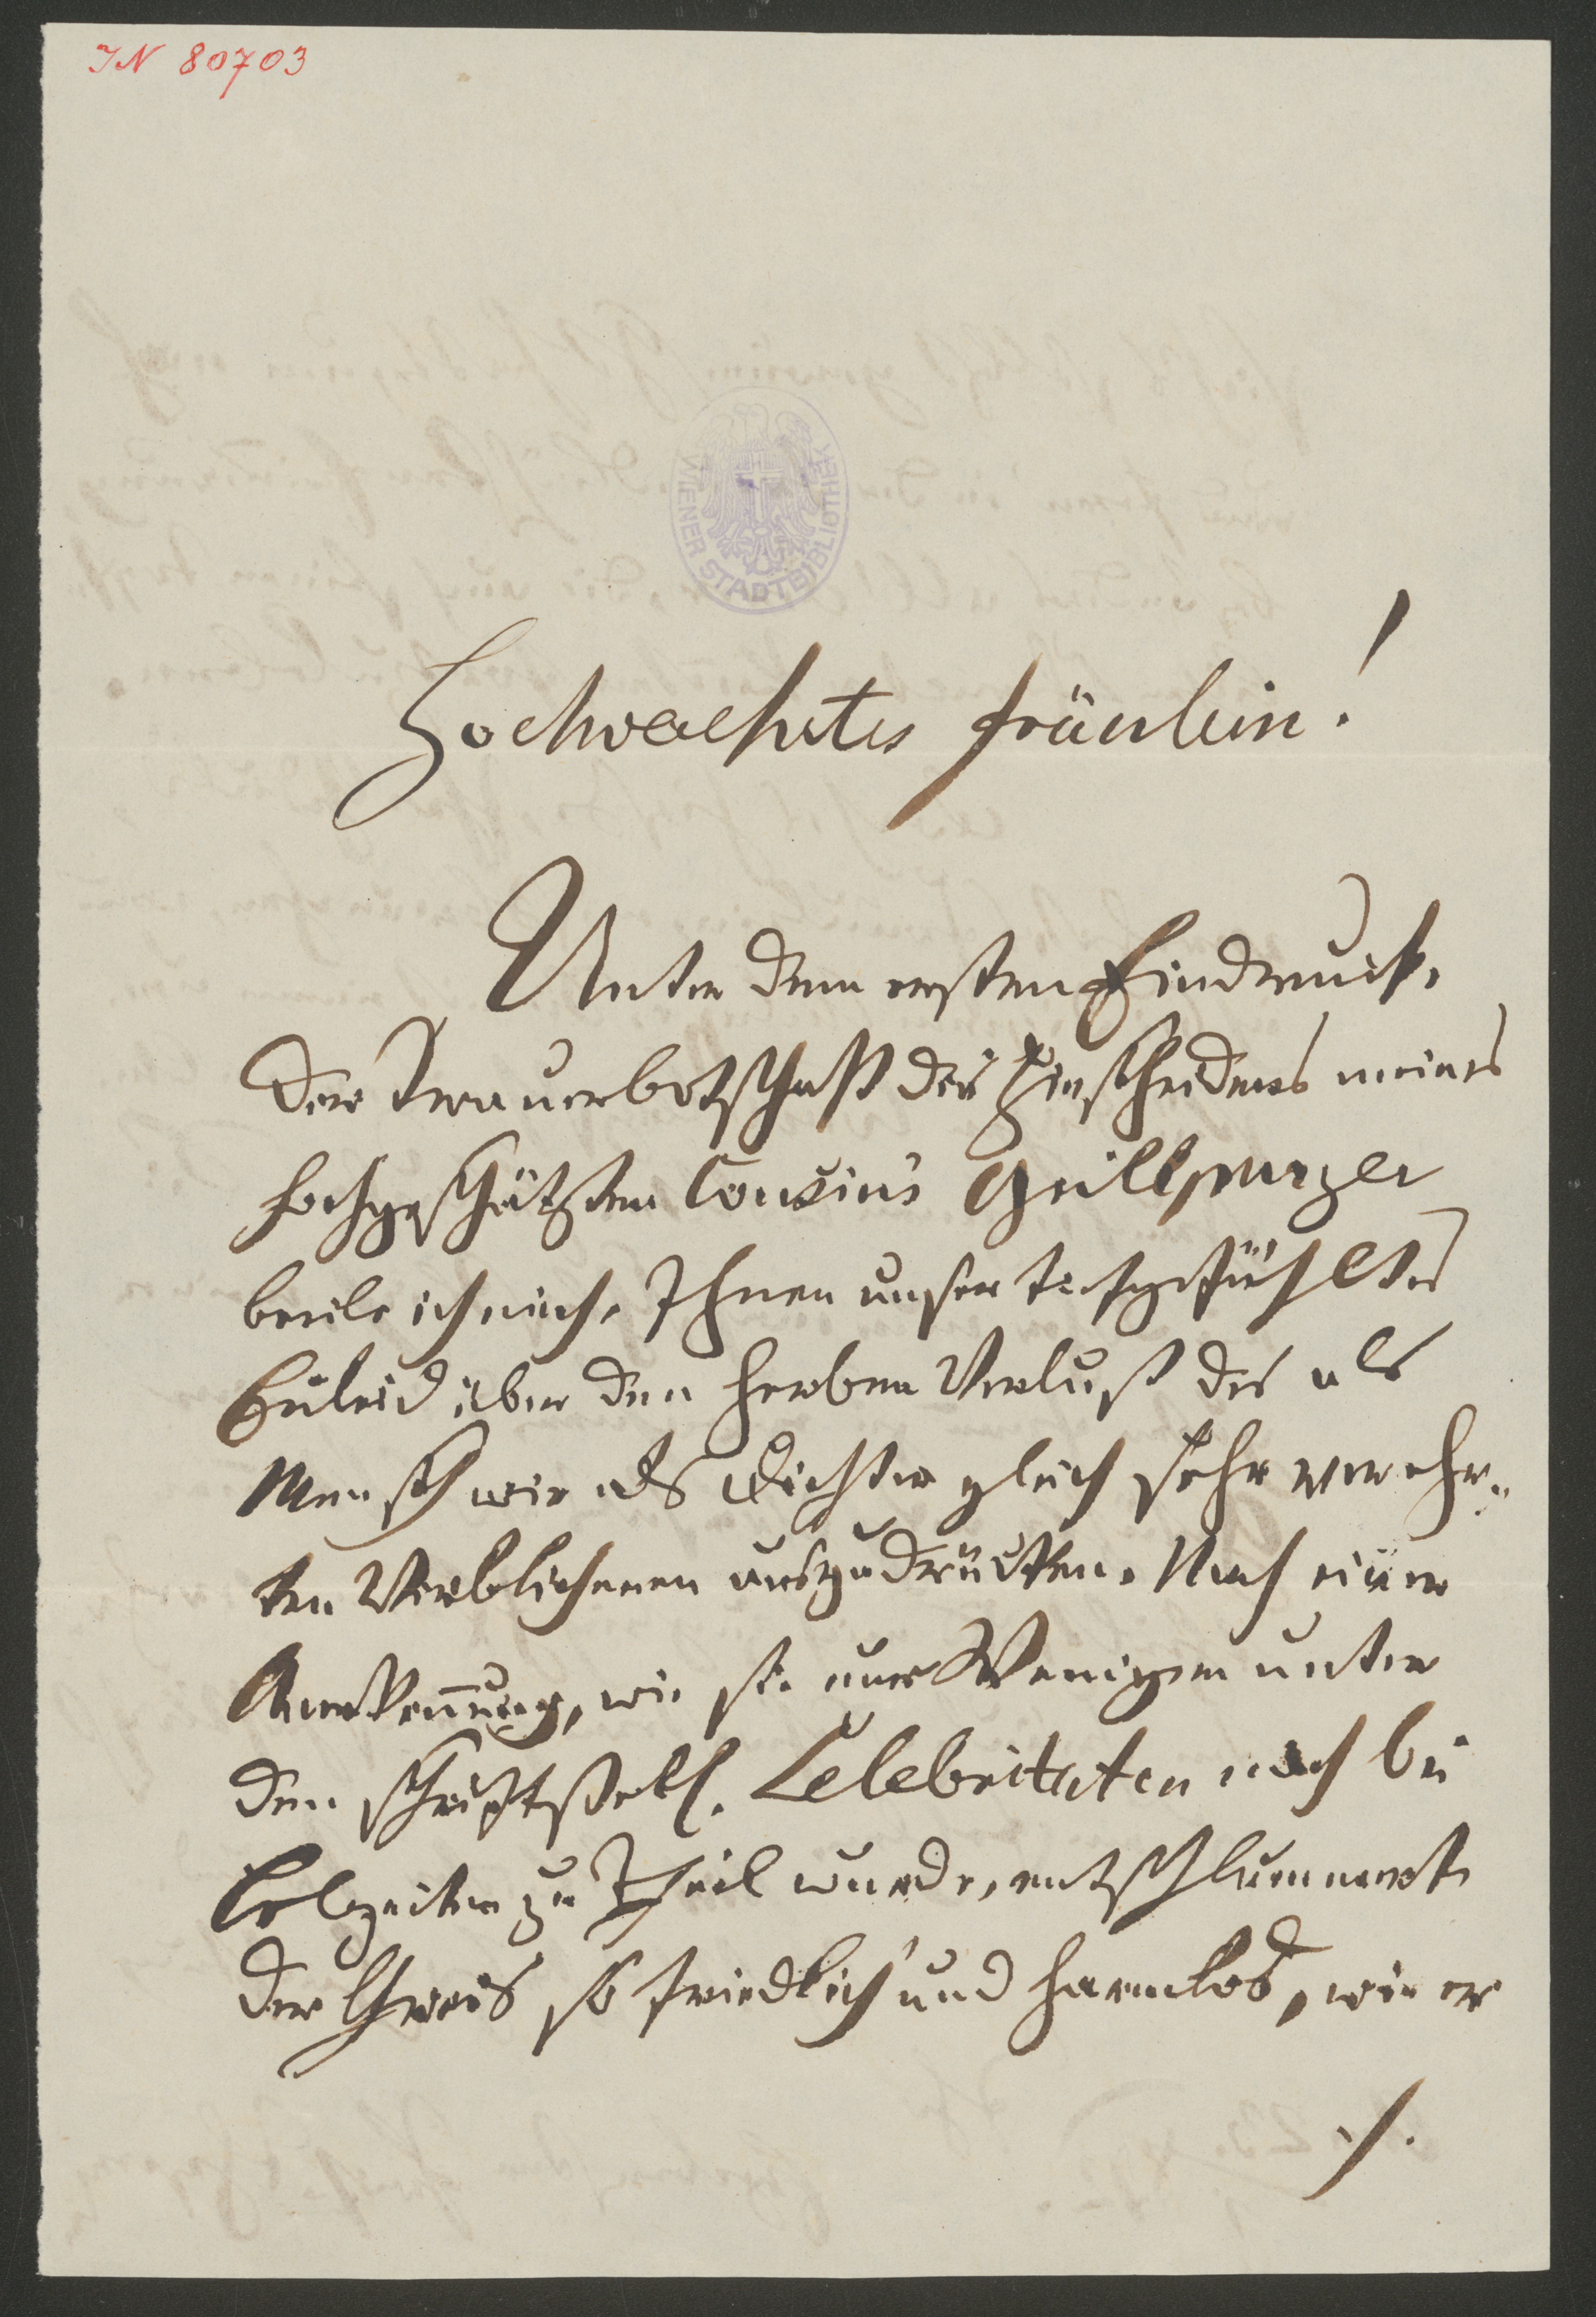 IN 80703
WIENER STADTBIBLIOTHEK
Hochverehrtes Fräulein!
Unter dem ersten Eindruck,
der Trauerbotschaft des Hinscheidens meines
hochgeschätzten Cousins Grillparzer
beeile ich mich, Ihnen unser tiefgefühltes
Beileid über den herben Verlust des als
Mensch wie als Dichter gleich sehr verehr-
ten Verblichenen auszudrücken. Nach einer
Anerkennung, wie sie nur Wenigen unter
den schriftstell. Celebritäten noch bei
Lebzeiten zu Theil wurde, entschlummerte
der Greis so friedlich und harmlos, wie er
./.